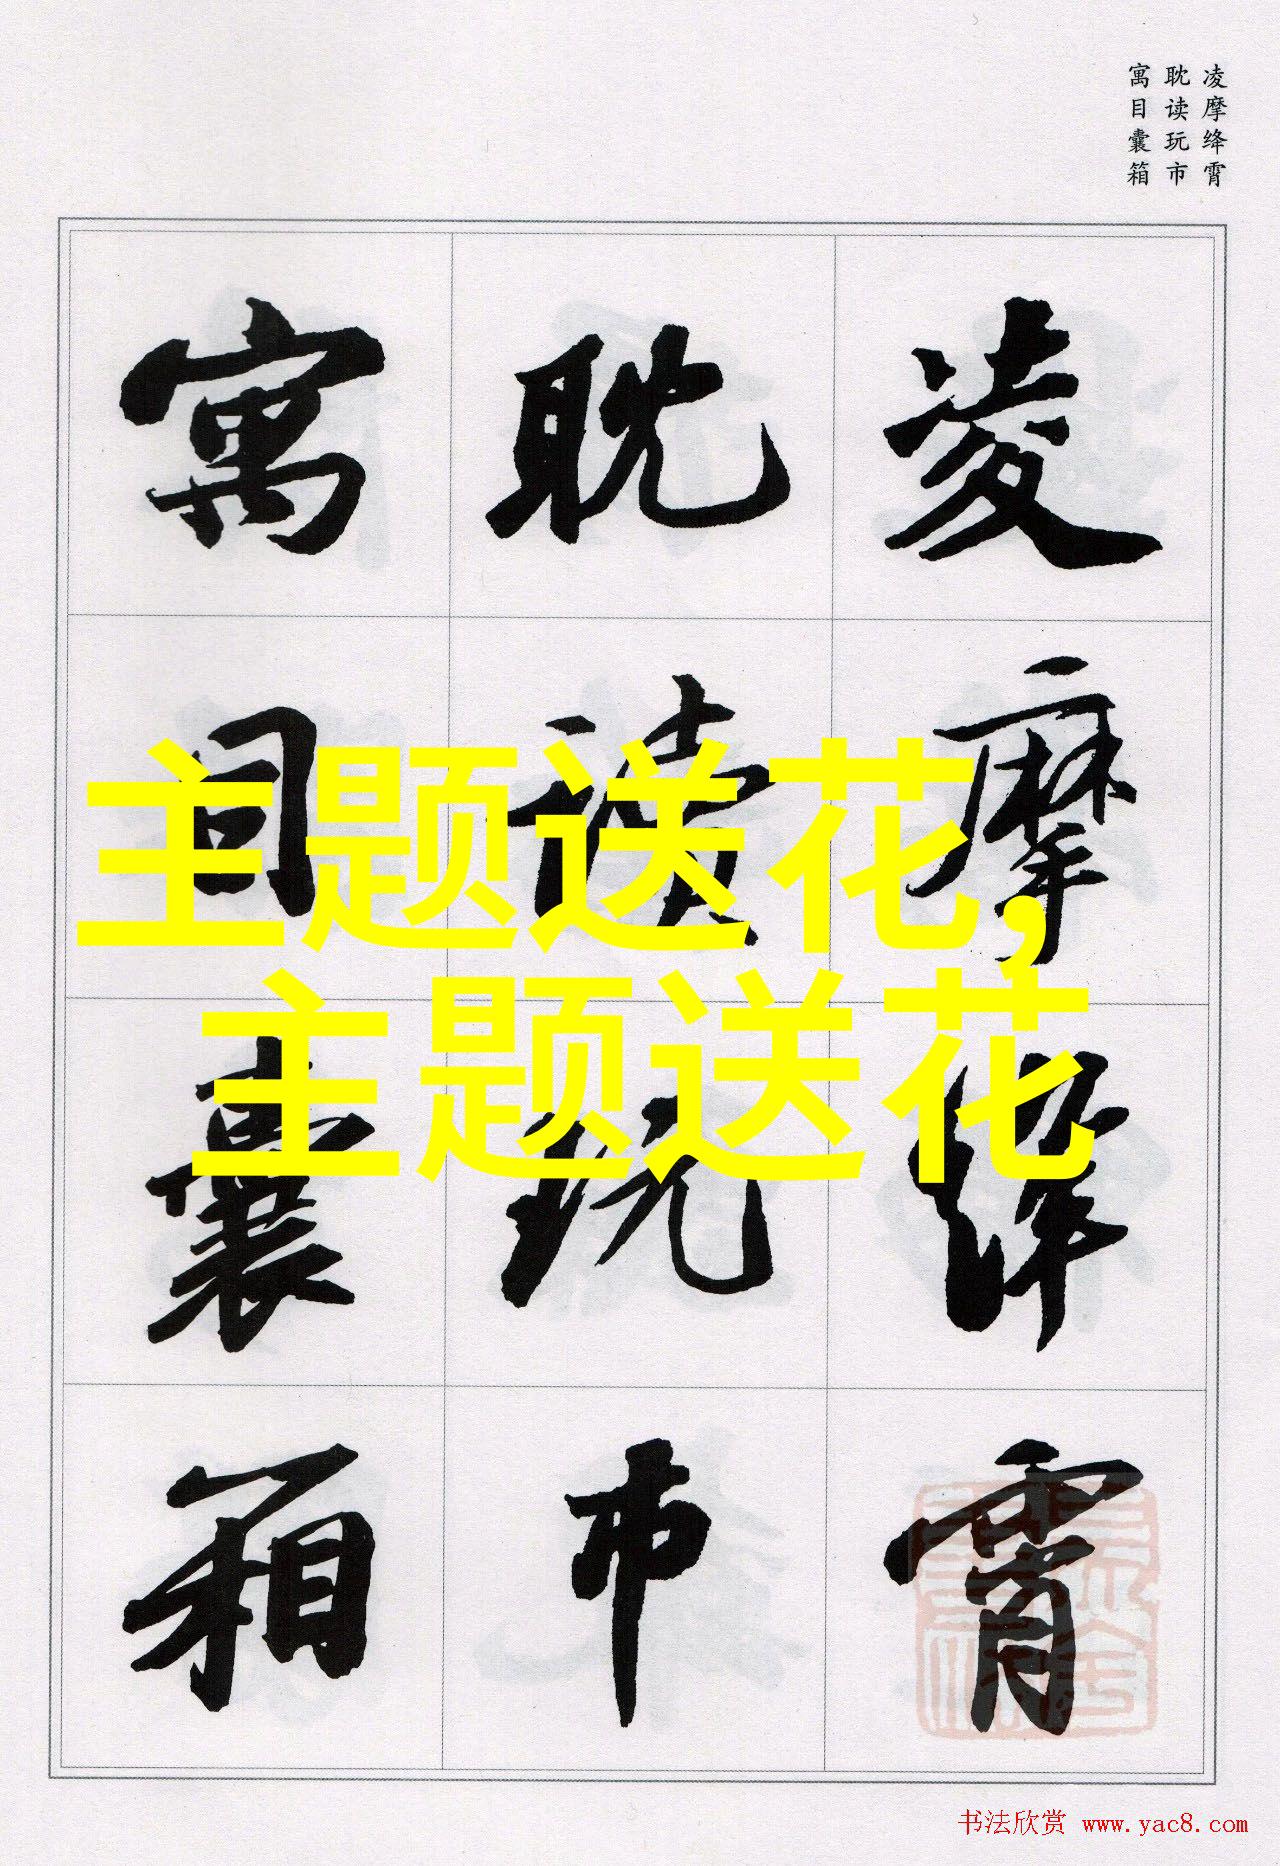 凌摩绛霄
耽读玩市
寓目囊箱
凌摩绛霄
耽读玩市
寓目囊箱
主题送花,
主题送花
书法欣赏 www.yac8.com